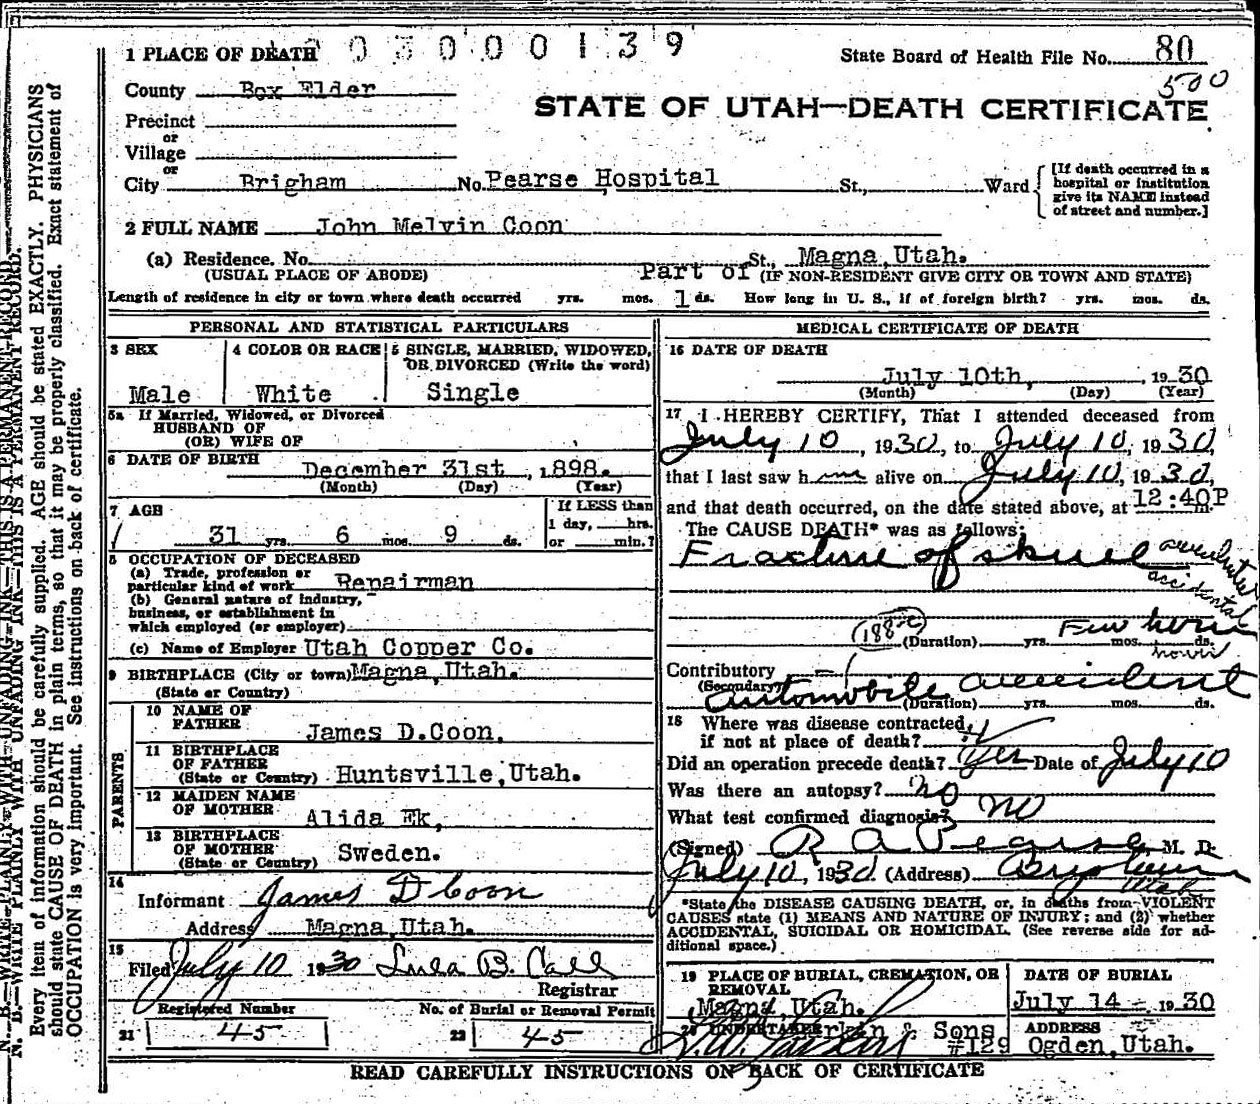 1 PLACE OF DEATH 0 3 0 0 0 0 1 3 9
State Board of Health File No. 80
500
County Box Elder
STATE OF UTAH—DEATH CERTIFICATE
Precinct
or
Village
or
City Brigham No. Pearse Hospital St., Ward
[If death occurred in a
hospital or institution
give its NAME instead
of street and number.]
2 FULL NAME John Melvin Coon
(a) Residence. No. St., Magna, Utah.
(USUAL PLACE OF ABODE) Part of (IF NON-RESIDENT GIVE CITY OR TOWN AND STATE)
Length of residence in city or town where death occurred yrs. mos. 1 ds. How long in U. S., if of foreign birth? yrs. mos. ds.
PERSONAL AND STATISTICAL PARTICULARS
3 SEX
Male
4 COLOR OR RACE
White
5 SINGLE, MARRIED, WIDOWED,
OR DIVORCED (Write the word)
Single
5a If Married, Widowed, or Divorced
HUSBAND OF
(OR) WIFE OF
6 DATE OF BIRTH December 31st, 1898.
(Month) (Day) (Year)
7 AGE
31 yrs. 6 mos. 9 ds.
If LESS than
1 day, hrs.
or min.?
8 OCCUPATION OF DECEASED
(a) Trade, profession or
particular kind of work Repairman
(b) General nature of industry,
business, or establishment in
which employed (or employer)
(c) Name of Employer Utah Copper Co.
9 BIRTHPLACE (City or town) Magna, Utah.
(State or Country)
PARENTS
10 NAME OF
FATHER James D. Coon.
11 BIRTHPLACE
OF FATHER
(State or Country) Huntsville, Utah.
12 MAIDEN NAME
OF MOTHER Alida Ek,
13 BIRTHPLACE
OF MOTHER
(State or Country) Sweden.
14
Informant James D Coon
Address Magna, Utah.
15
Filed July 10 1930 Lula B. Call
Registrar
Registered Number
21 45
No. of Burial or Removal Permit
22 45
MEDICAL CERTIFICATE OF DEATH
16 DATE OF DEATH
July 10th, 1930
(Month) (Day) (Year)
17 I HEREBY CERTIFY, That I attended deceased from
July 10, 1930, to July 10, 1930,
that I last saw h alive on July 10, 1930,
and that death occurred, on the date stated above, at 12:40P m.
The CAUSE DEATH* was as follows:
Fracture of skull
accidental
(188c) (Duration) yrs. mos. ds.
Few hours
hours
Contributory
(Secondary) automobile accident
(Duration) yrs. mos. ds.
18 Where was disease contracted,
if not at place of death?
Did an operation precede death? Yes Date of July 10
Was there an autopsy? no
What test confirmed diagnosis? no
(Signed) R A Pearse M. D.
July 10, 1930 (Address) Brigham
Utah
*State the DISEASE CAUSING DEATH, or, in deaths from VIOLENT
CAUSES state (1) MEANS AND NATURE OF INJURY; and (2) whether
ACCIDENTAL, SUICIDAL OR HOMICIDAL. (See reverse side for ad-
ditional space.)
19 PLACE OF BURIAL, CREMATION, OR
REMOVAL
Magna, Utah.
DATE OF BURIAL
July 14 - 1930
20 UNDERTAKER & Sons
#129
ADDRESS
Ogden, Utah.
READ CAREFULLY INSTRUCTIONS ON BACK OF CERTIFICATE
N. B.—WRITE PLAINLY WITH UNFADING INK—THIS IS A PERMANENT RECORD.
Every item of information should be carefully supplied. AGE should be stated EXACTLY. PHYSICIANS
should state CAUSE OF DEATH in plain terms, so that it may be properly classified. Exact statement of
OCCUPATION is very important. See instructions on back of certificate.